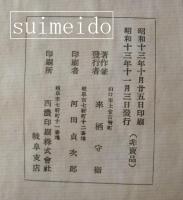 suimeido
昭和十三年十月廿五日印刷
昭和十三年十一月三日發行
(非賣品)
著作兼
發行者
山口縣
來栖守衞
岐阜市七軒町十二番地
印刷者
河田貞次郎
岐阜市七軒町十二番地
印刷所
西濃印刷株式會社
岐阜支店